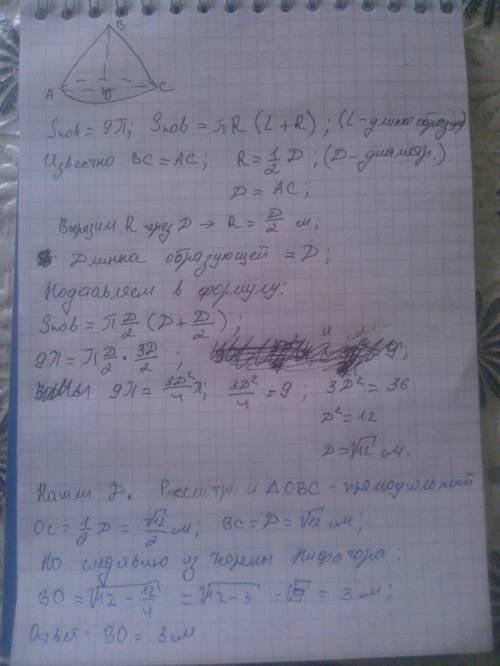 B
A
C
O
Sпов = 9π; Sпов = πR (L + R); (L - длина образующ)
Известно BC = AC; R = 1/2 D; (D - диаметр.)
D = AC;
Вырозим R через D → R = D/2 м;
Длинна образующей = D;
Подставляем в формулу:
Sпов = π D/2 (D + D/2);
9π = π D/2 · 3D/2;
9π = 3D²/4 π; 3D²/4 = 9; 3D² = 36
D² = 12
D = √12 м.
Нашли D. Рассмотрим △OBC - прямоугольный
OC = 1/2 D = √12/2 м; BC = D = √12 м;
По следствию из теоремы Пифагора:
BO = √12 - 12/4 = √12 - 3 = √9 = 3 м;
Ответ: BO = 3 м.